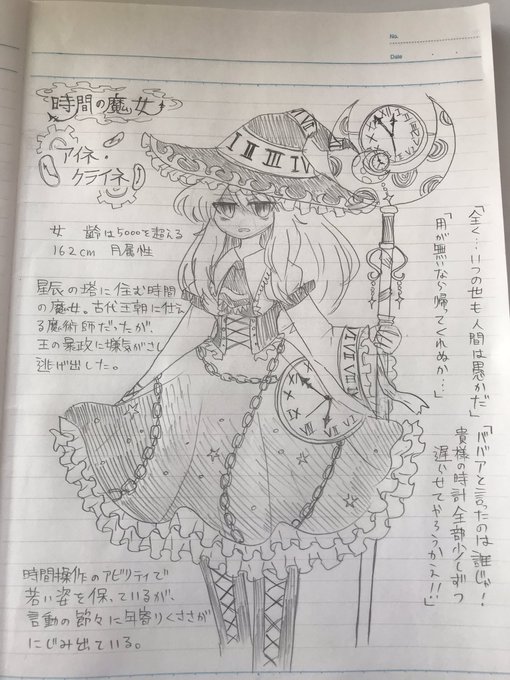 No.
Date
時間の魔女
アイネ・
クライネ
女 齢は5000を超える
162cm 月属性
星辰の塔に住む時間
の魔女。古代王朝に仕え
る魔術師だったが、
王の暴政に嫌気がさし
逃げ出した。
I II III IV
VI VII VIII
「全く…いつの世も人間は愚かだ」
「用が無いなら帰ってくれぬか…」
「ババアと言ったのは誰じゃ!
貴様の時計全部少しずつ
遅らせてやろうかえ!!」
時間操作のアビリティで
若い姿を保っているが、
言動の節々に年寄りくささが
にじみ出ている。